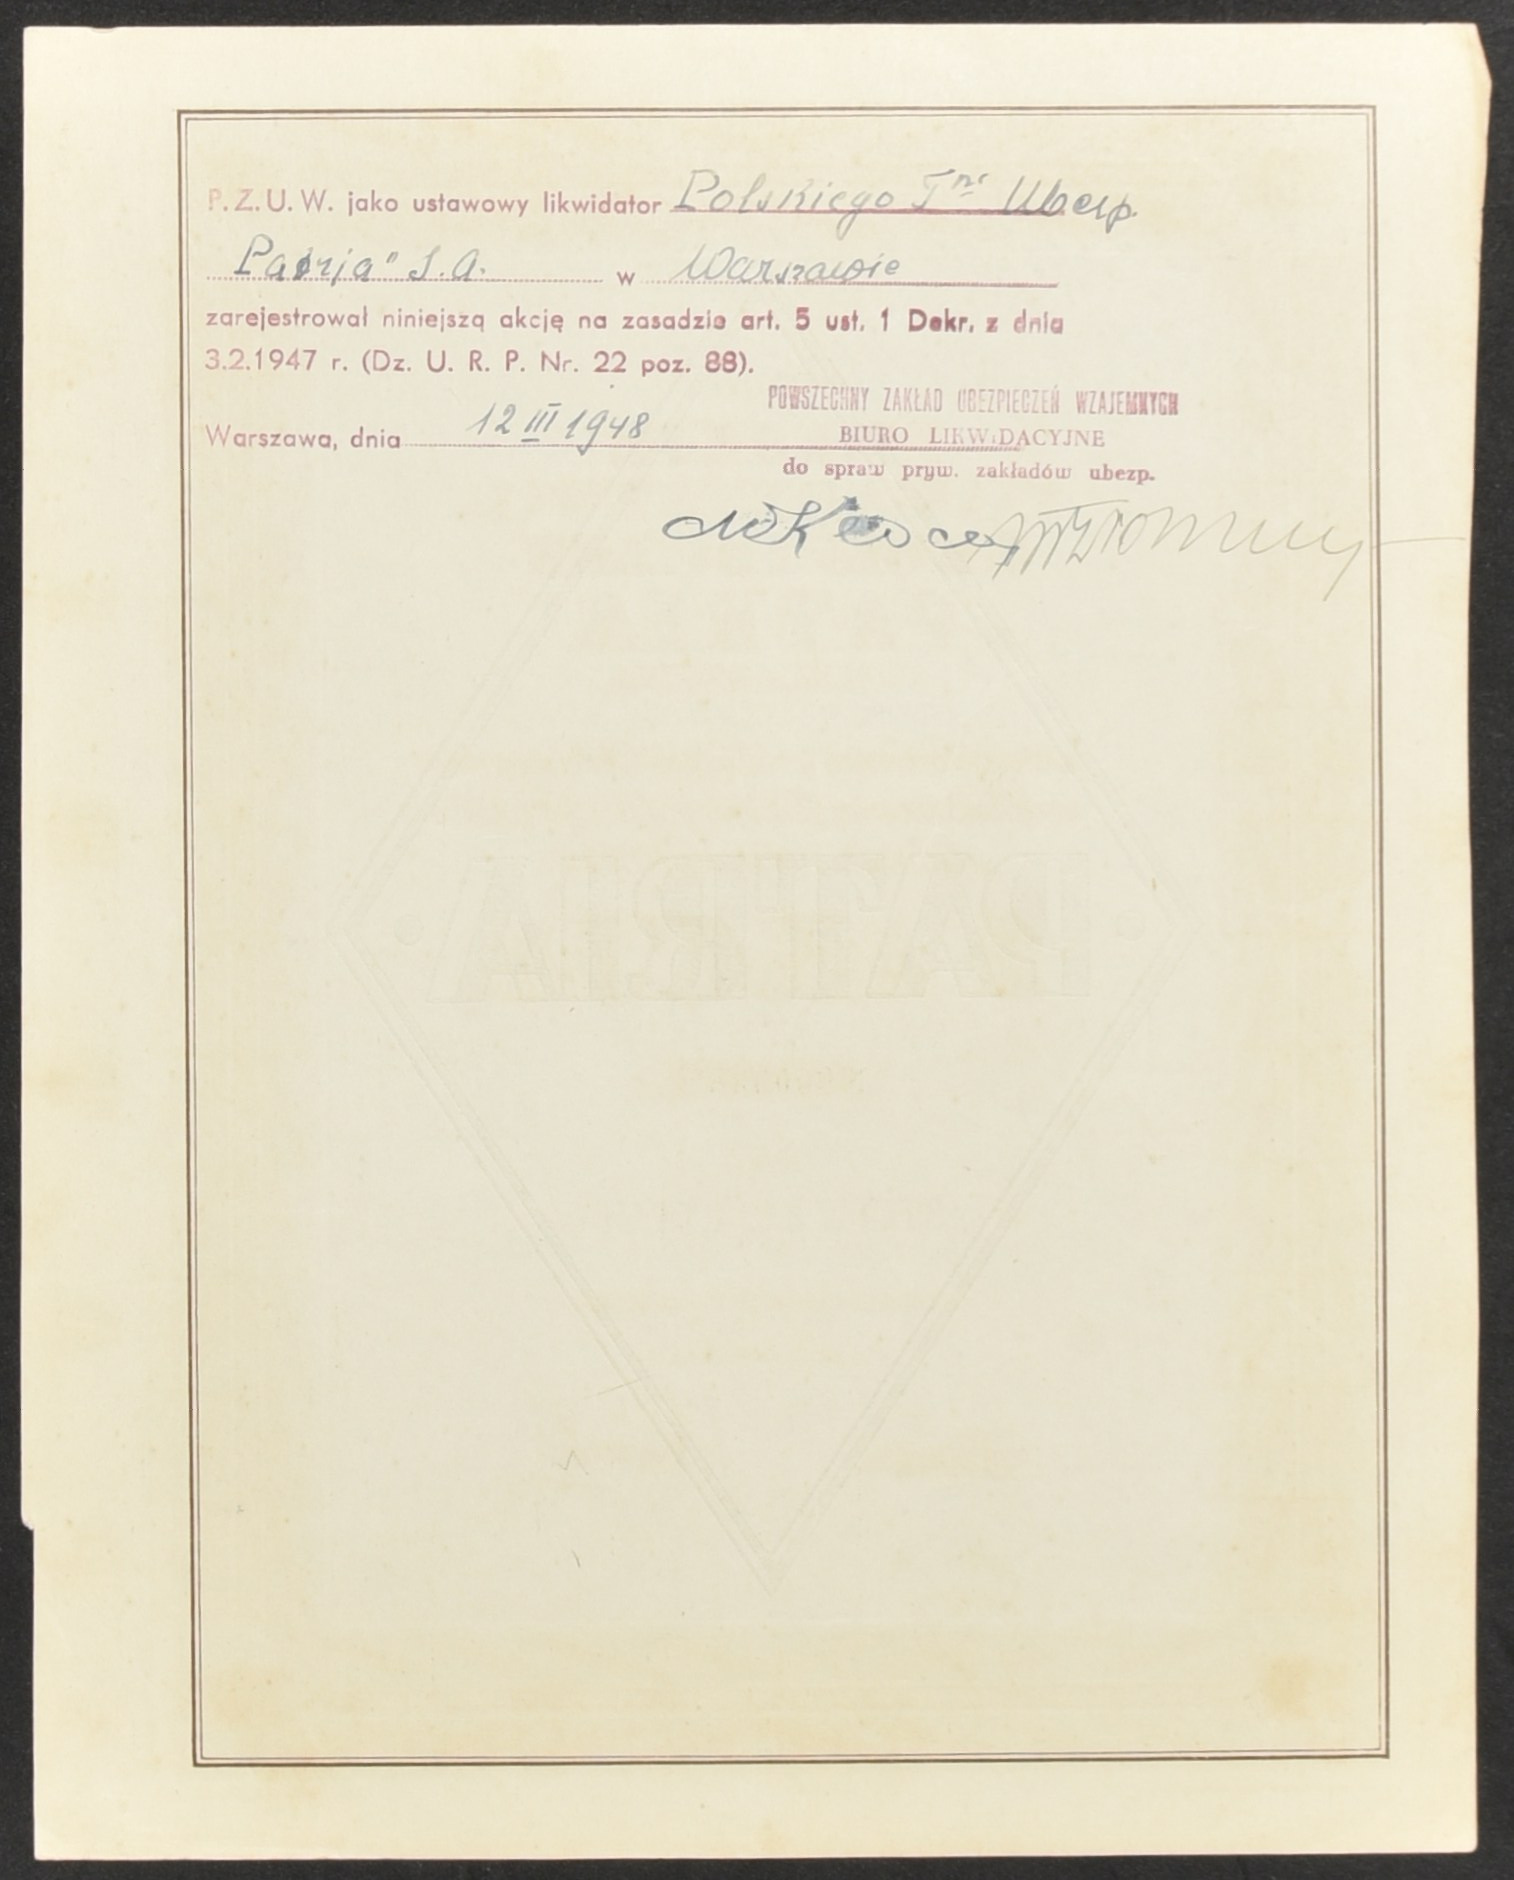 P. Z. U. W. jako ustawowy likwidator Polskiego Twa Ubezp.
"Patrja" S.A. w Warszawie
zarejestrował niniejszą akcję na zasadzie art. 5 ust. 1 Dekr. z dnia
3.2.1947 r. (Dz. U. R. P. Nr. 22 poz. 88).
POWSZECHNY ZAKŁAD UBEZPIECZEŃ WZAJEMNYCH
Warszawa, dnia 12 III 1948 BIURO LIKWIDACYJNE
do spraw pryw. zakładów ubezp.
PATRIA